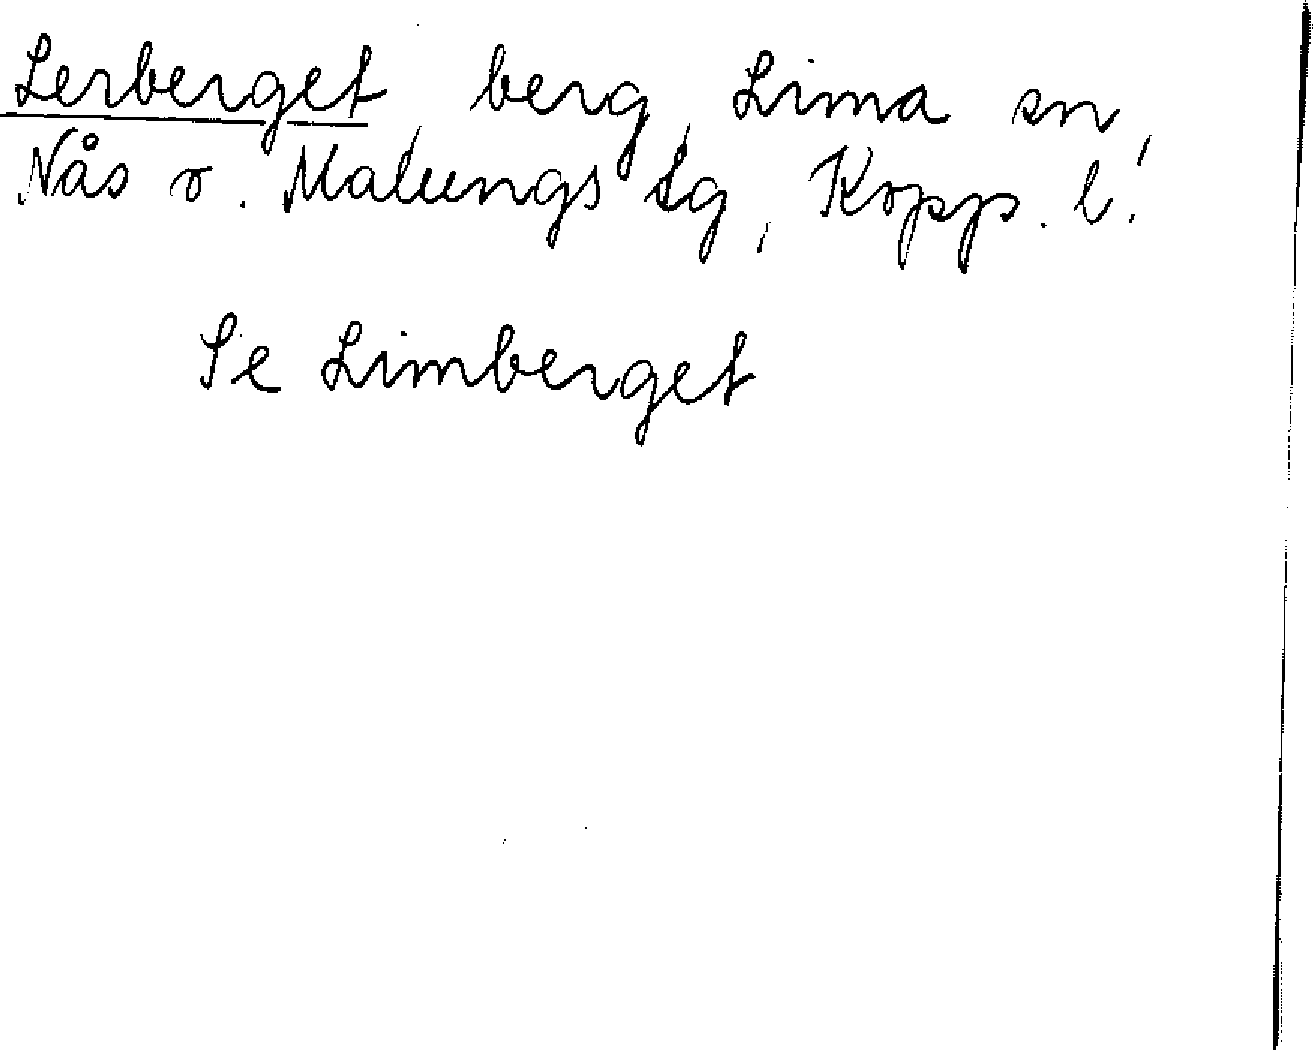 Lerberget, berg, Lima sn,
Nås o. Malungs tg, Kopp. l.
Se Limberget